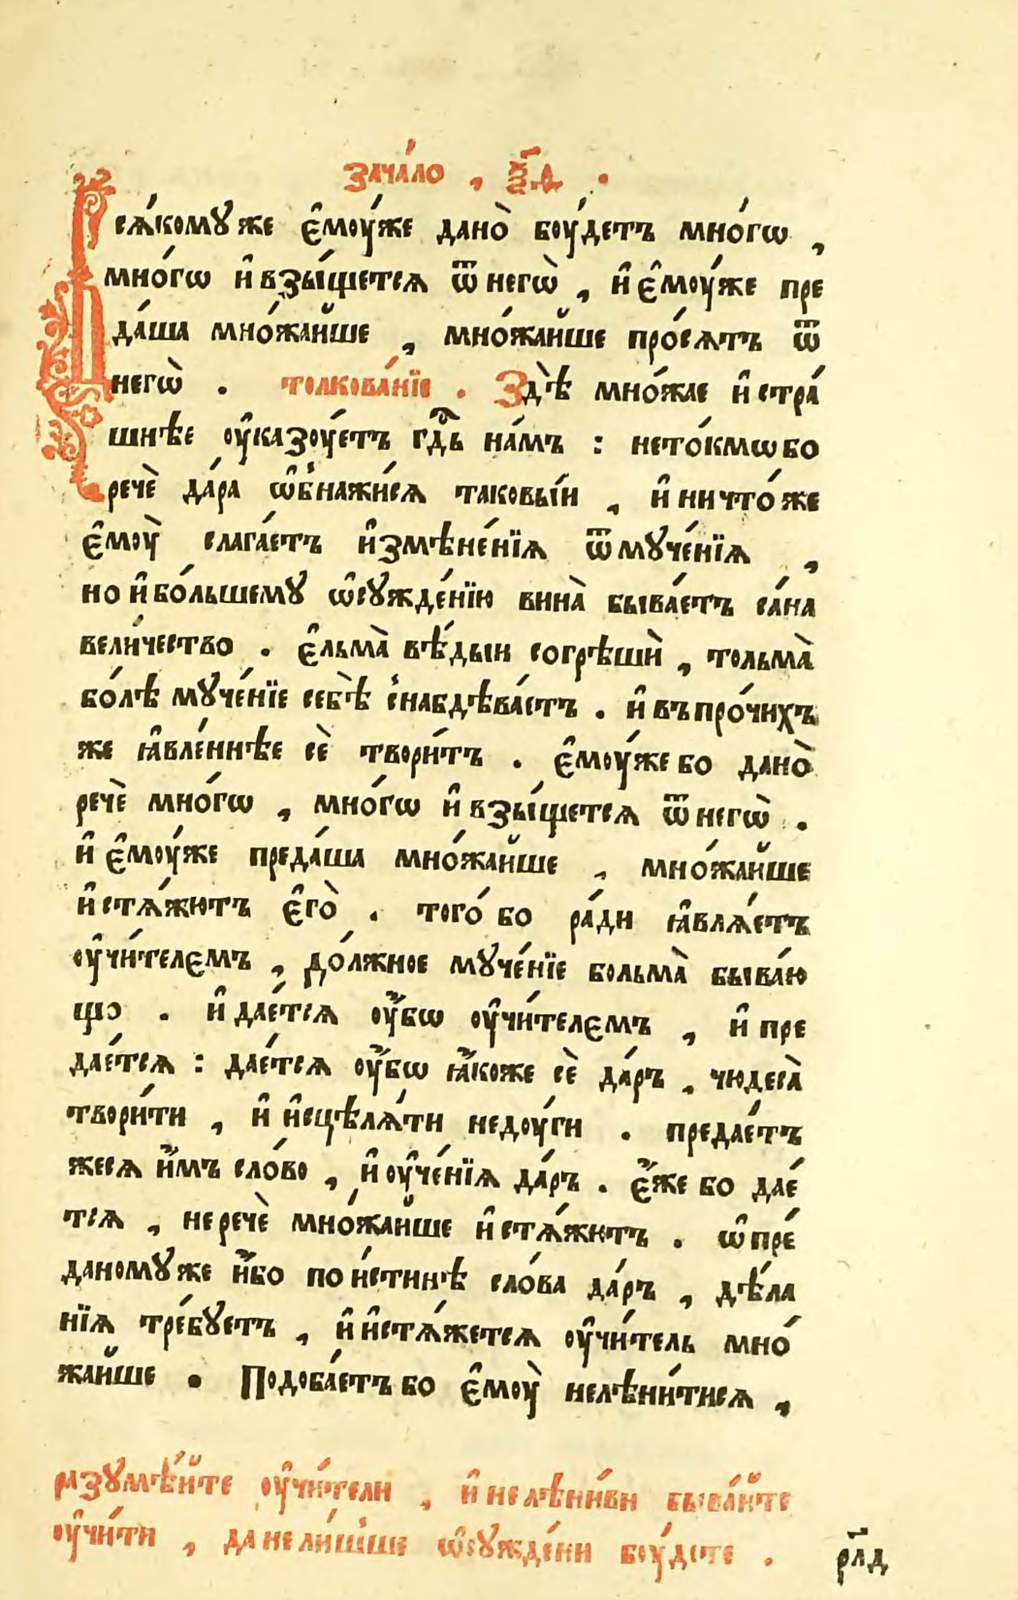 зача́ло , ѯ҃д .
Всѧ́комꙋ же є҆моу́же дано̀ боу́детъ мно́гѡ ,
мно́гѡ и҆ взы́щетсѧ ѿ негѡ̀ , и҆ є҆моу́же пре
да́ша мно́жайше , мно́жайше про́сѧтъ ѿ
негѡ̀ . толкова́нїе . Здѣ̀ мно́жае и҆ стра́
шнѣе оу҆казоу́етъ гд҇ь на́мъ : нето́кмѡ бо
речѐ да́ра ѡ҆бнажи́сѧ таковы́и , и҆ ничто́ же
є҆моу̀ слага́етъ и҆змѣне́нїѧ ѿ мꙋче́нїѧ ,
но и҆ бо́льшемꙋ ѡ҆сꙋжде́нїю вина̀ быва́етъ са́на
вели́чество . є҆льма̀ вѣ́дыи согрѣшѝ , тольма̀
бо́лѣ мꙋче́нїе себѣ̀ снабдѣва́етъ . и҆ въ про́чихъ
же ꙗ҆вле́ннѣе сѐ твори́тъ . є҆моу́же бо дано̀
речѐ мно́гѡ , мно́гѡ и҆ взы́щетсѧ ѿ негѡ̀ .
и҆ є҆моу́же преда́ша мно́жайше , мно́жайше
и҆стѧ́жютъ є҆го̀ . того́ бо ра́ди ꙗ҆влѧ́етъ
оу҆чи́телємъ , до́лжное мꙋче́нїе больма̀ быва́ю
що . и҆ дае́тсѧ оу҆́бѡ оу҆чи́телємъ , и҆ пре
дае́тсѧ : дае́тсѧ оу҆́бѡ ꙗ҆́коже сѐ да́ръ , чюдеса̀
твори́ти , и҆ и҆сцѣлѧ́ти недоу́ги . предае́тъ
жесѧ и҆́мъ сло́во , и҆ оу҆че́нїѧ да́ръ . є҆́же бо дае́
тсѧ , не речѐ мно́жайше и҆стѧ́жютъ . ѡ҆ пре́
даномꙋ же и҆́бо по и҆́стинѣ сло́ва да́ръ , дѣ́ла
нїѧ тре́бꙋетъ , и҆ и҆стѧ́жетсѧ оу҆чи́тель мно́
жайше . Подоба́етъ бо є҆моу̀ нелѣни́тисѧ ,
разꙋмѣ́йте оу҆чи́тели , и҆ не лѣни́ви быва́йте
оу҆чи́ти , да не ли́шьше ѡ҆сꙋжде́ни боу́дете .
рл҃д